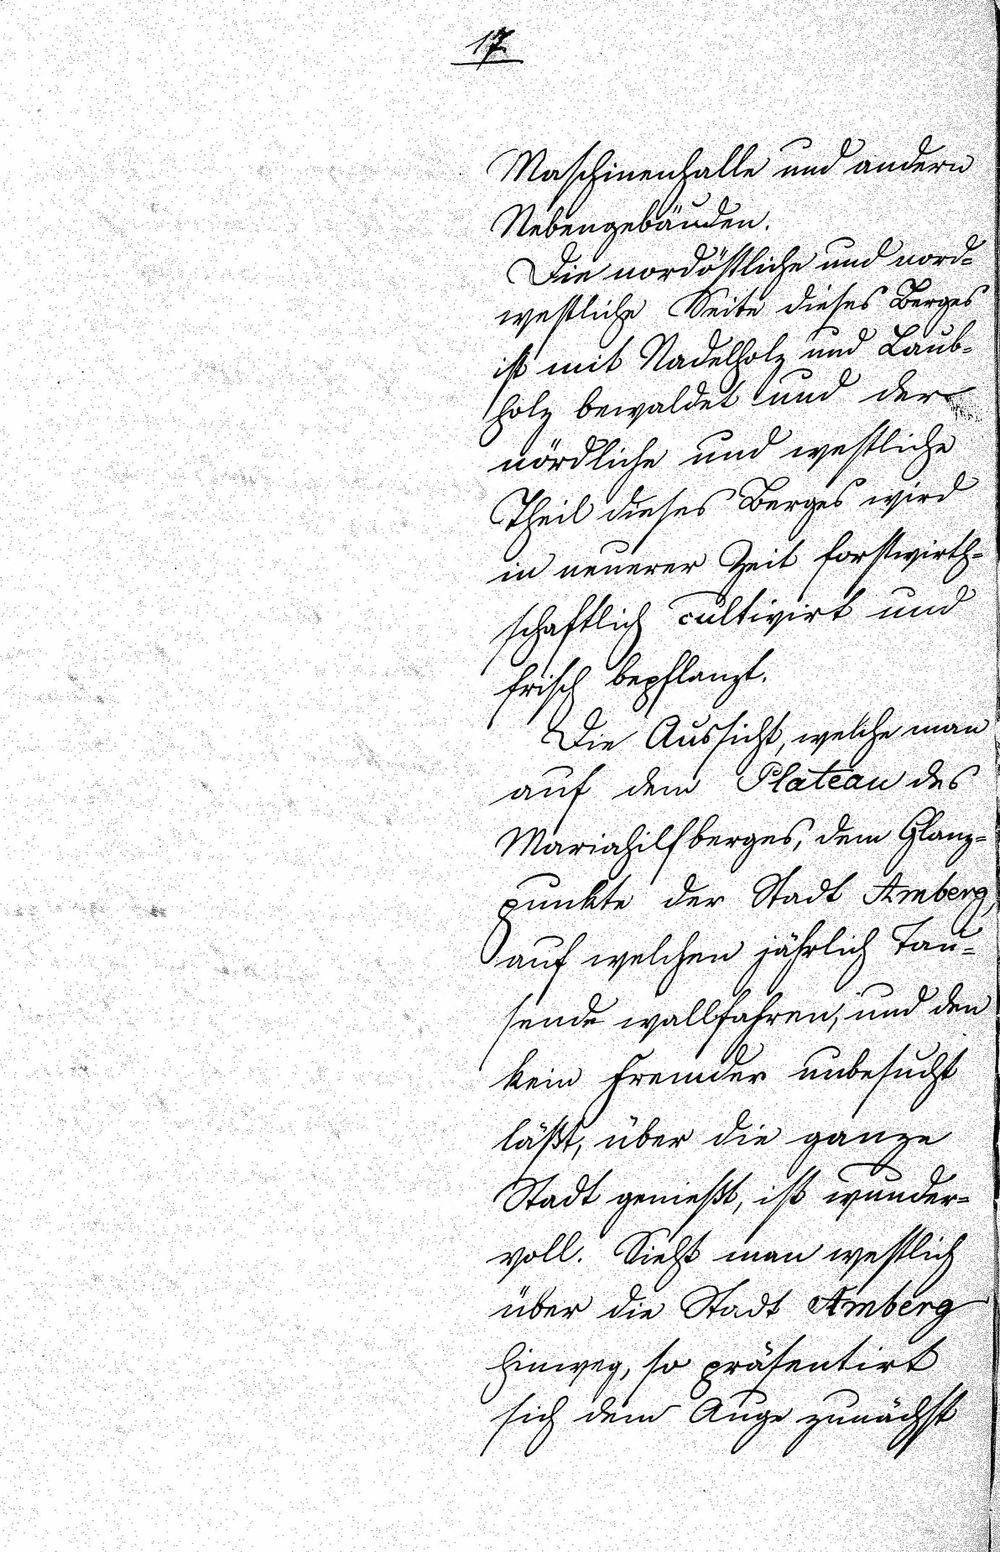 17
Maschinenhalle und andern
Nebengebäuden.
Die nordöstliche und nord=
westliche Seite dieses Berges
ist mit Nadelholz und Laub=
holz bewaldet und der
nördliche und westliche
Theil dieses Berges wird
in neuerer Zeit forstwirth=
schaftlich cultivirt und
frisch bepflanzt.
Die Aussicht, welche man
auf dem Plateau des
Mariahilfberges, dem Glanz=
punkte der Stadt Amberg,
auf welchen jährlich Tau=
sende wallfahren, und den
kein Fremder unbesucht
läßt, über die ganze
Stadt genießt, ist wunder=
voll. Sieht man westlich
über die Stadt Amberg
hinweg, so präsentirt
sich dem Auge zunächst